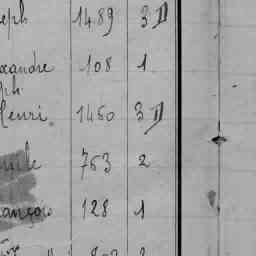 eph 1489 3 D
xandre 108 1
ph
Henri 1450 3 D
763 2
ançois 128 1